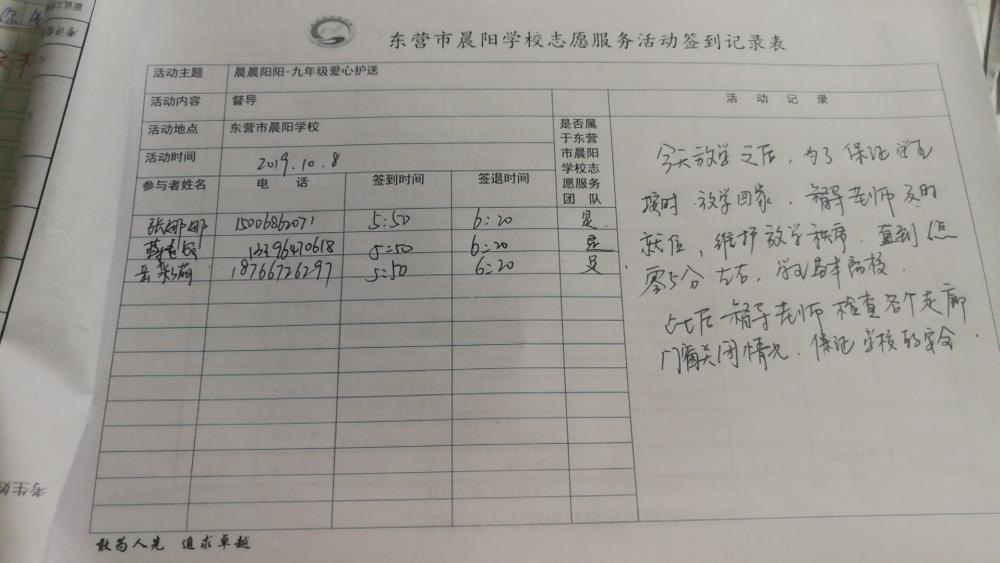 东营市晨阳学校志愿服务活动签到记录表
活动主题 晨晨阳阳-九年级爱心护送
活动内容 督导
活动地点 东营市晨阳学校
活动时间 2019.10.8
是否属
于东营
市晨阳
学校志
愿服务
团 队
参与者姓名 电 话 签到时间 签退时间
张娜娜 15006862071 5:50 6:20 是
13396470618 5:50 6:20 是
18766726297 5:50 6:20 是
活 动 记 录
今天放学之后,为了保证学生
按时放学回家,督导老师及时
就位,维护放学秩序,直到
零5分左右,学生基本离校.
此后督导老师检查各个走廊
门窗关闭情况,保证学校的安全.
敢为人先 追求卓越